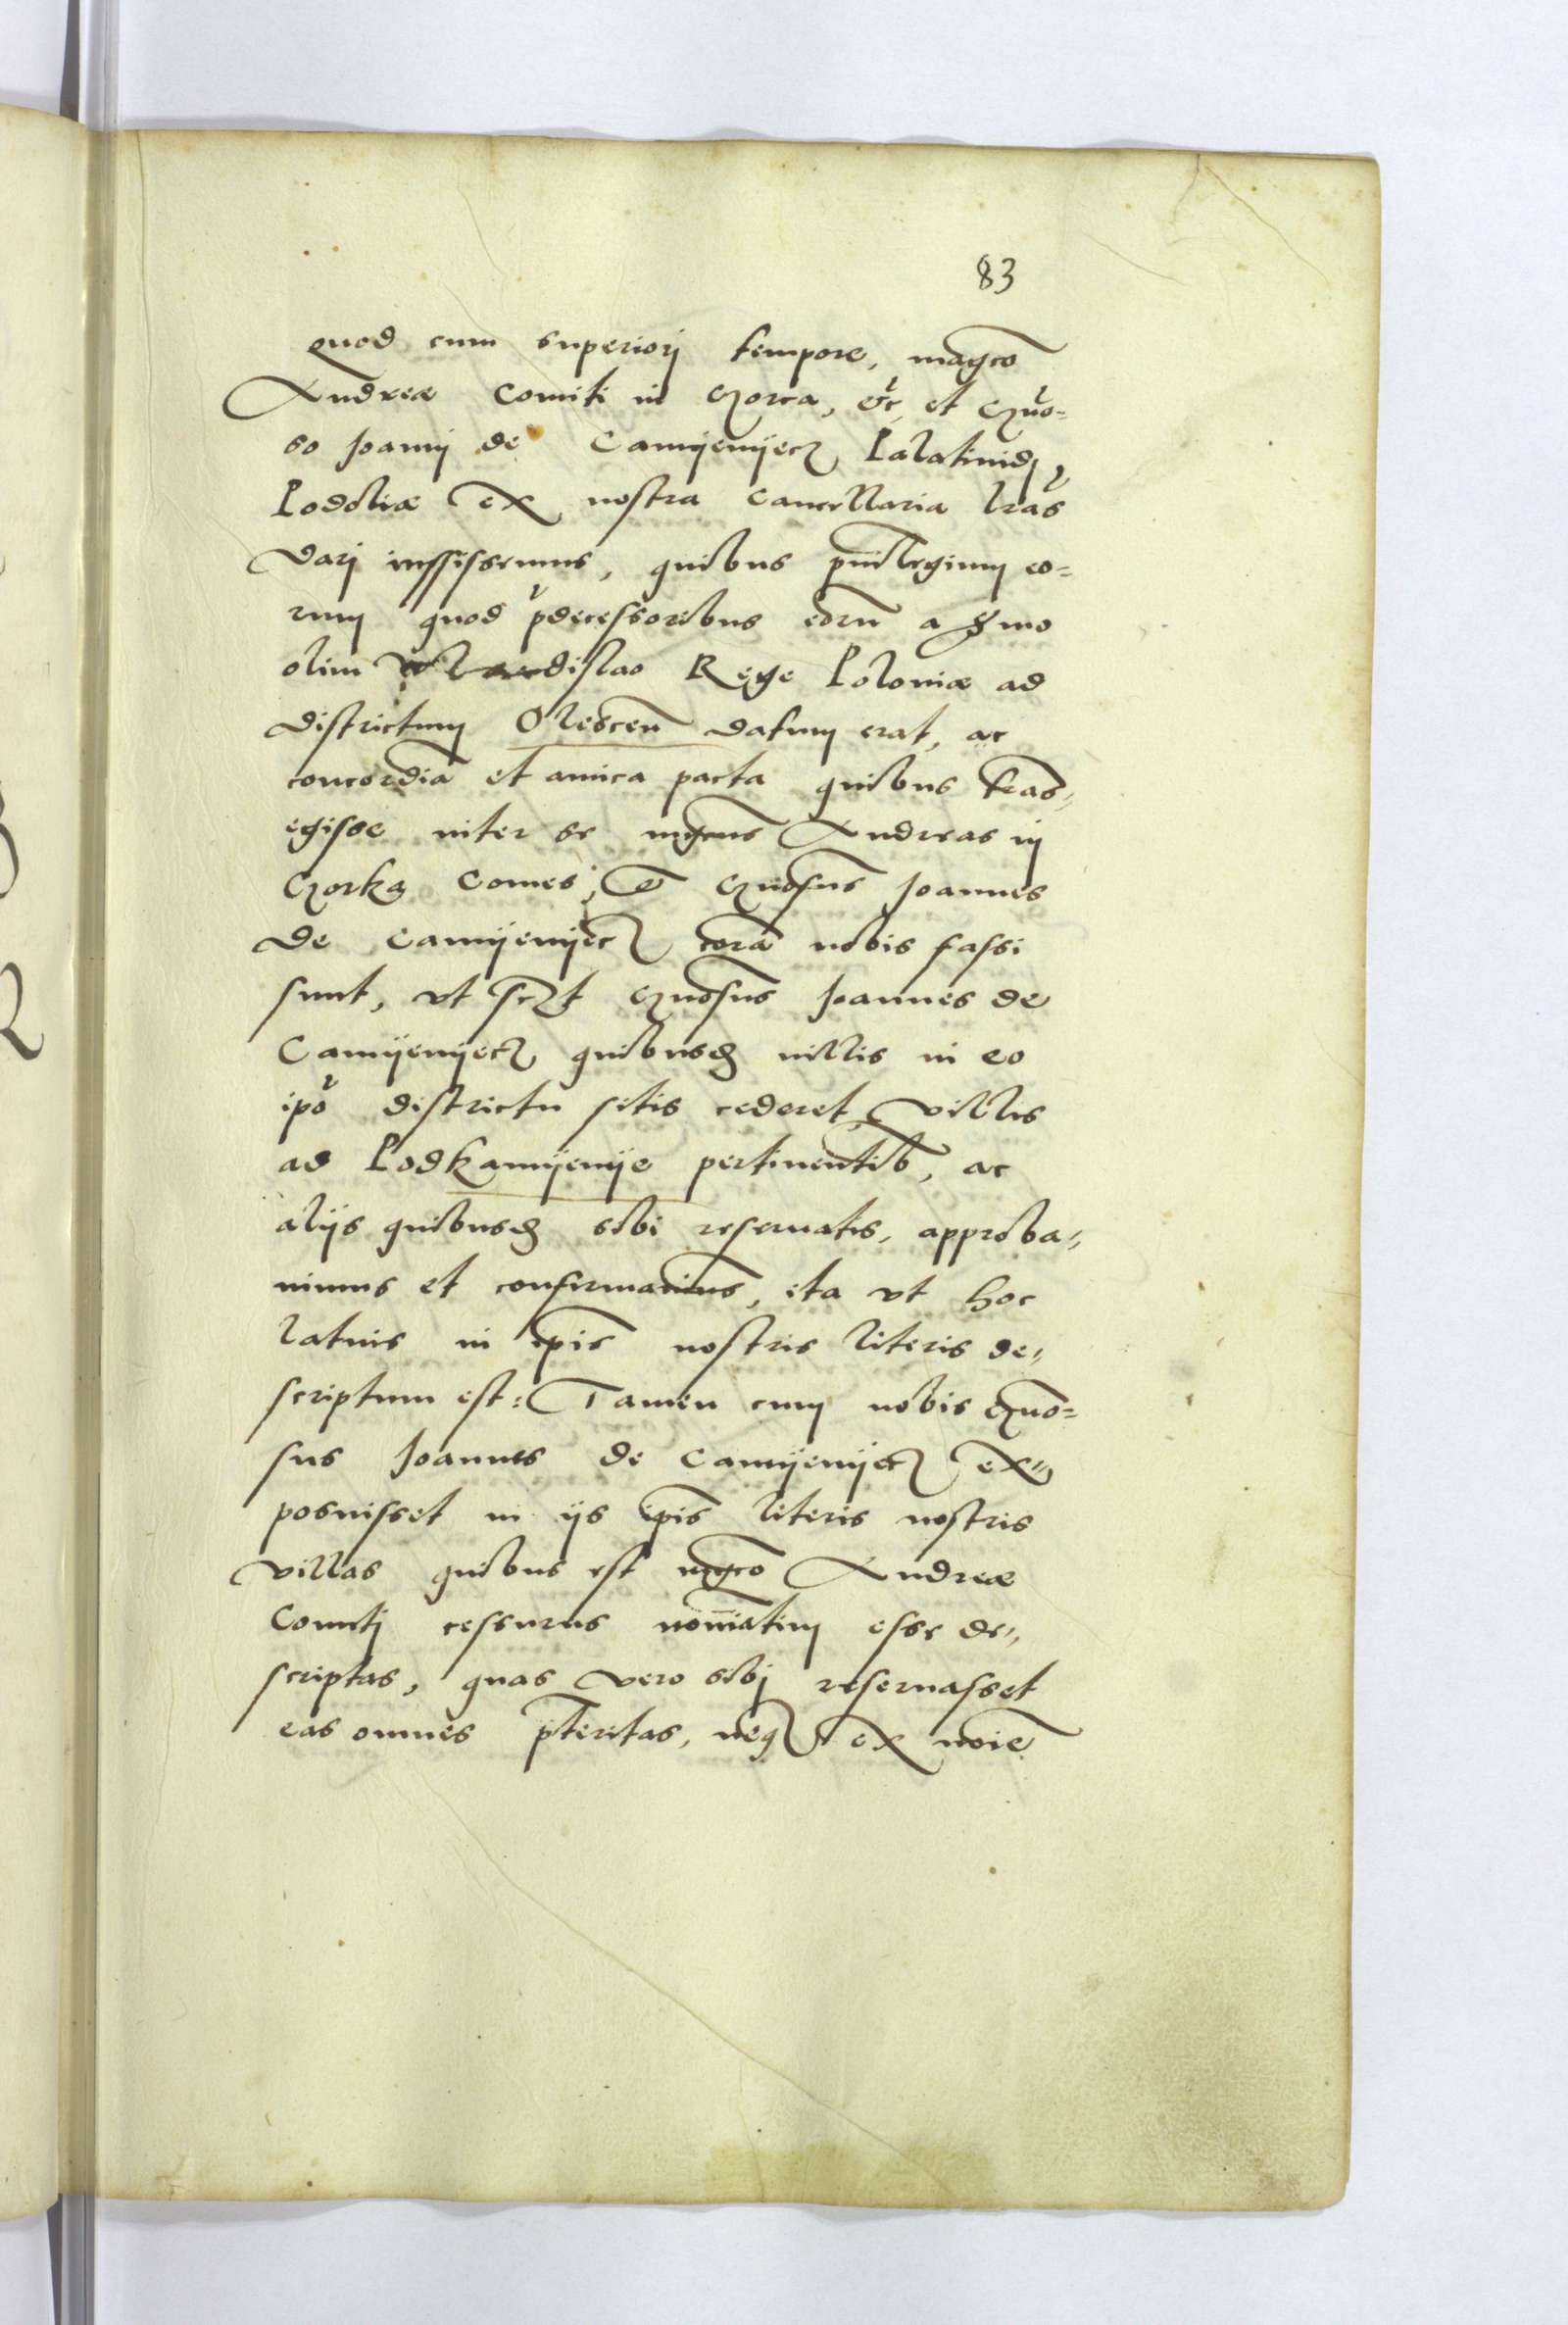 83
quod cum superiorj tempore, magco
Andreæ Comiti in Gorca, etc, et Gn̄o=
so Joannj de Camyenyecz Palatinidj,
Podoliæ ex nostra Cancellaria lras
darj iussissemus, quibus priuilegium eo=
rum quod pdecessoribus eorū a Smo
olim Vladislao Rege Poloniæ ad
districtum Olescen̄ datum erat, ac
concordiā et amica pacta quibus tras,,
egisse inter se mgcus Andreas in
Gorka Comes, et Gnosus Joannes
de Camyenyecz corā nobis fassi
sunt, vt sczt Gnosus Joannes de
Camyenyecz quibusdȝ uillis in eo
ipo districtu sitis cederet, villis
ad Podkamyenye pertinentib, ac
alijs quibusdȝ sibi reseruatis, approba,,
uimus et confirmauimus, ita vt hoc
latius in ipis nostris literis de,,
scriptum est: Tamen cum nobis Gn̄o=
sus Joannes de Camyenyecz ex,,
posuisset in ijs ipis literis nostris
villas quibus est mgco Andreæ
Comitj cessurus nominatim esse de,,
scriptas, quas vero sibj reseruasset
eas omnes pteritas, neqȝ ex noīe